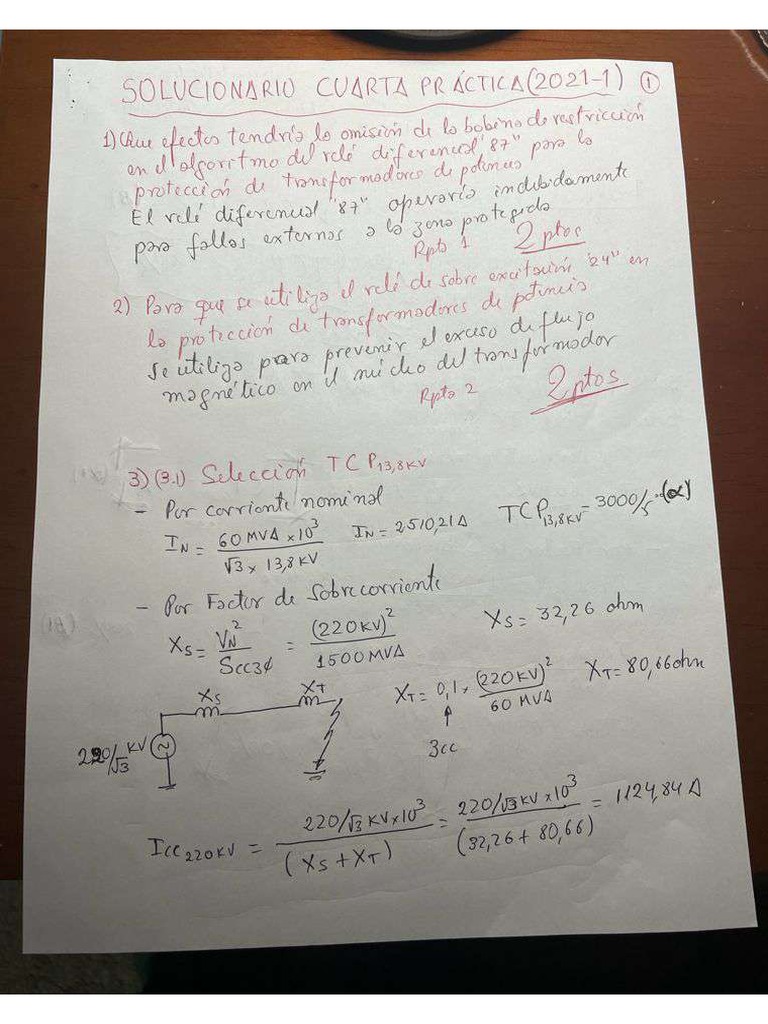 SOLUCIONARIO CUARTA PRÁCTICA (2021-1) ①
1) Que efectos tendría la omisión de la bobina de restricción
en el algoritmo del relé diferencial "87" para la
protección de transformadores de potencia
El relé diferencial "87" operaría indebidamente
para fallas externas a la zona protegida
Rpta 1 2 ptos
2) Para que se utiliza el relé de sobre excitación "24" en
la protección de transformadores de potencia
Se utiliza para prevenir el exceso de flujo
magnético en el núcleo del transformador
Rpta 2 2 ptos
3) (3.1) Selección TCP13,8KV
- Por corriente nominal
IN = 60 MVA x 10³ / √3 x 13,8 KV IN = 2510,21 A TCP13,8KV = 3000/5 ··(α)
- Por Factor de Sobrecorriente
XS = VN² / Scc3φ = (220 KV)² / 1500 MVA XS = 32,26 ohm
XS XT XT = 0,1 x (220 KV)² / 60 MVA XT = 80,66 ohm
220/√3 KV
3cc
Icc220KV = 220/√3 KV x 10³ / (XS + XT) = 220/√3 KV x 10³ / (32,26 + 80,66) = 1124,84 A